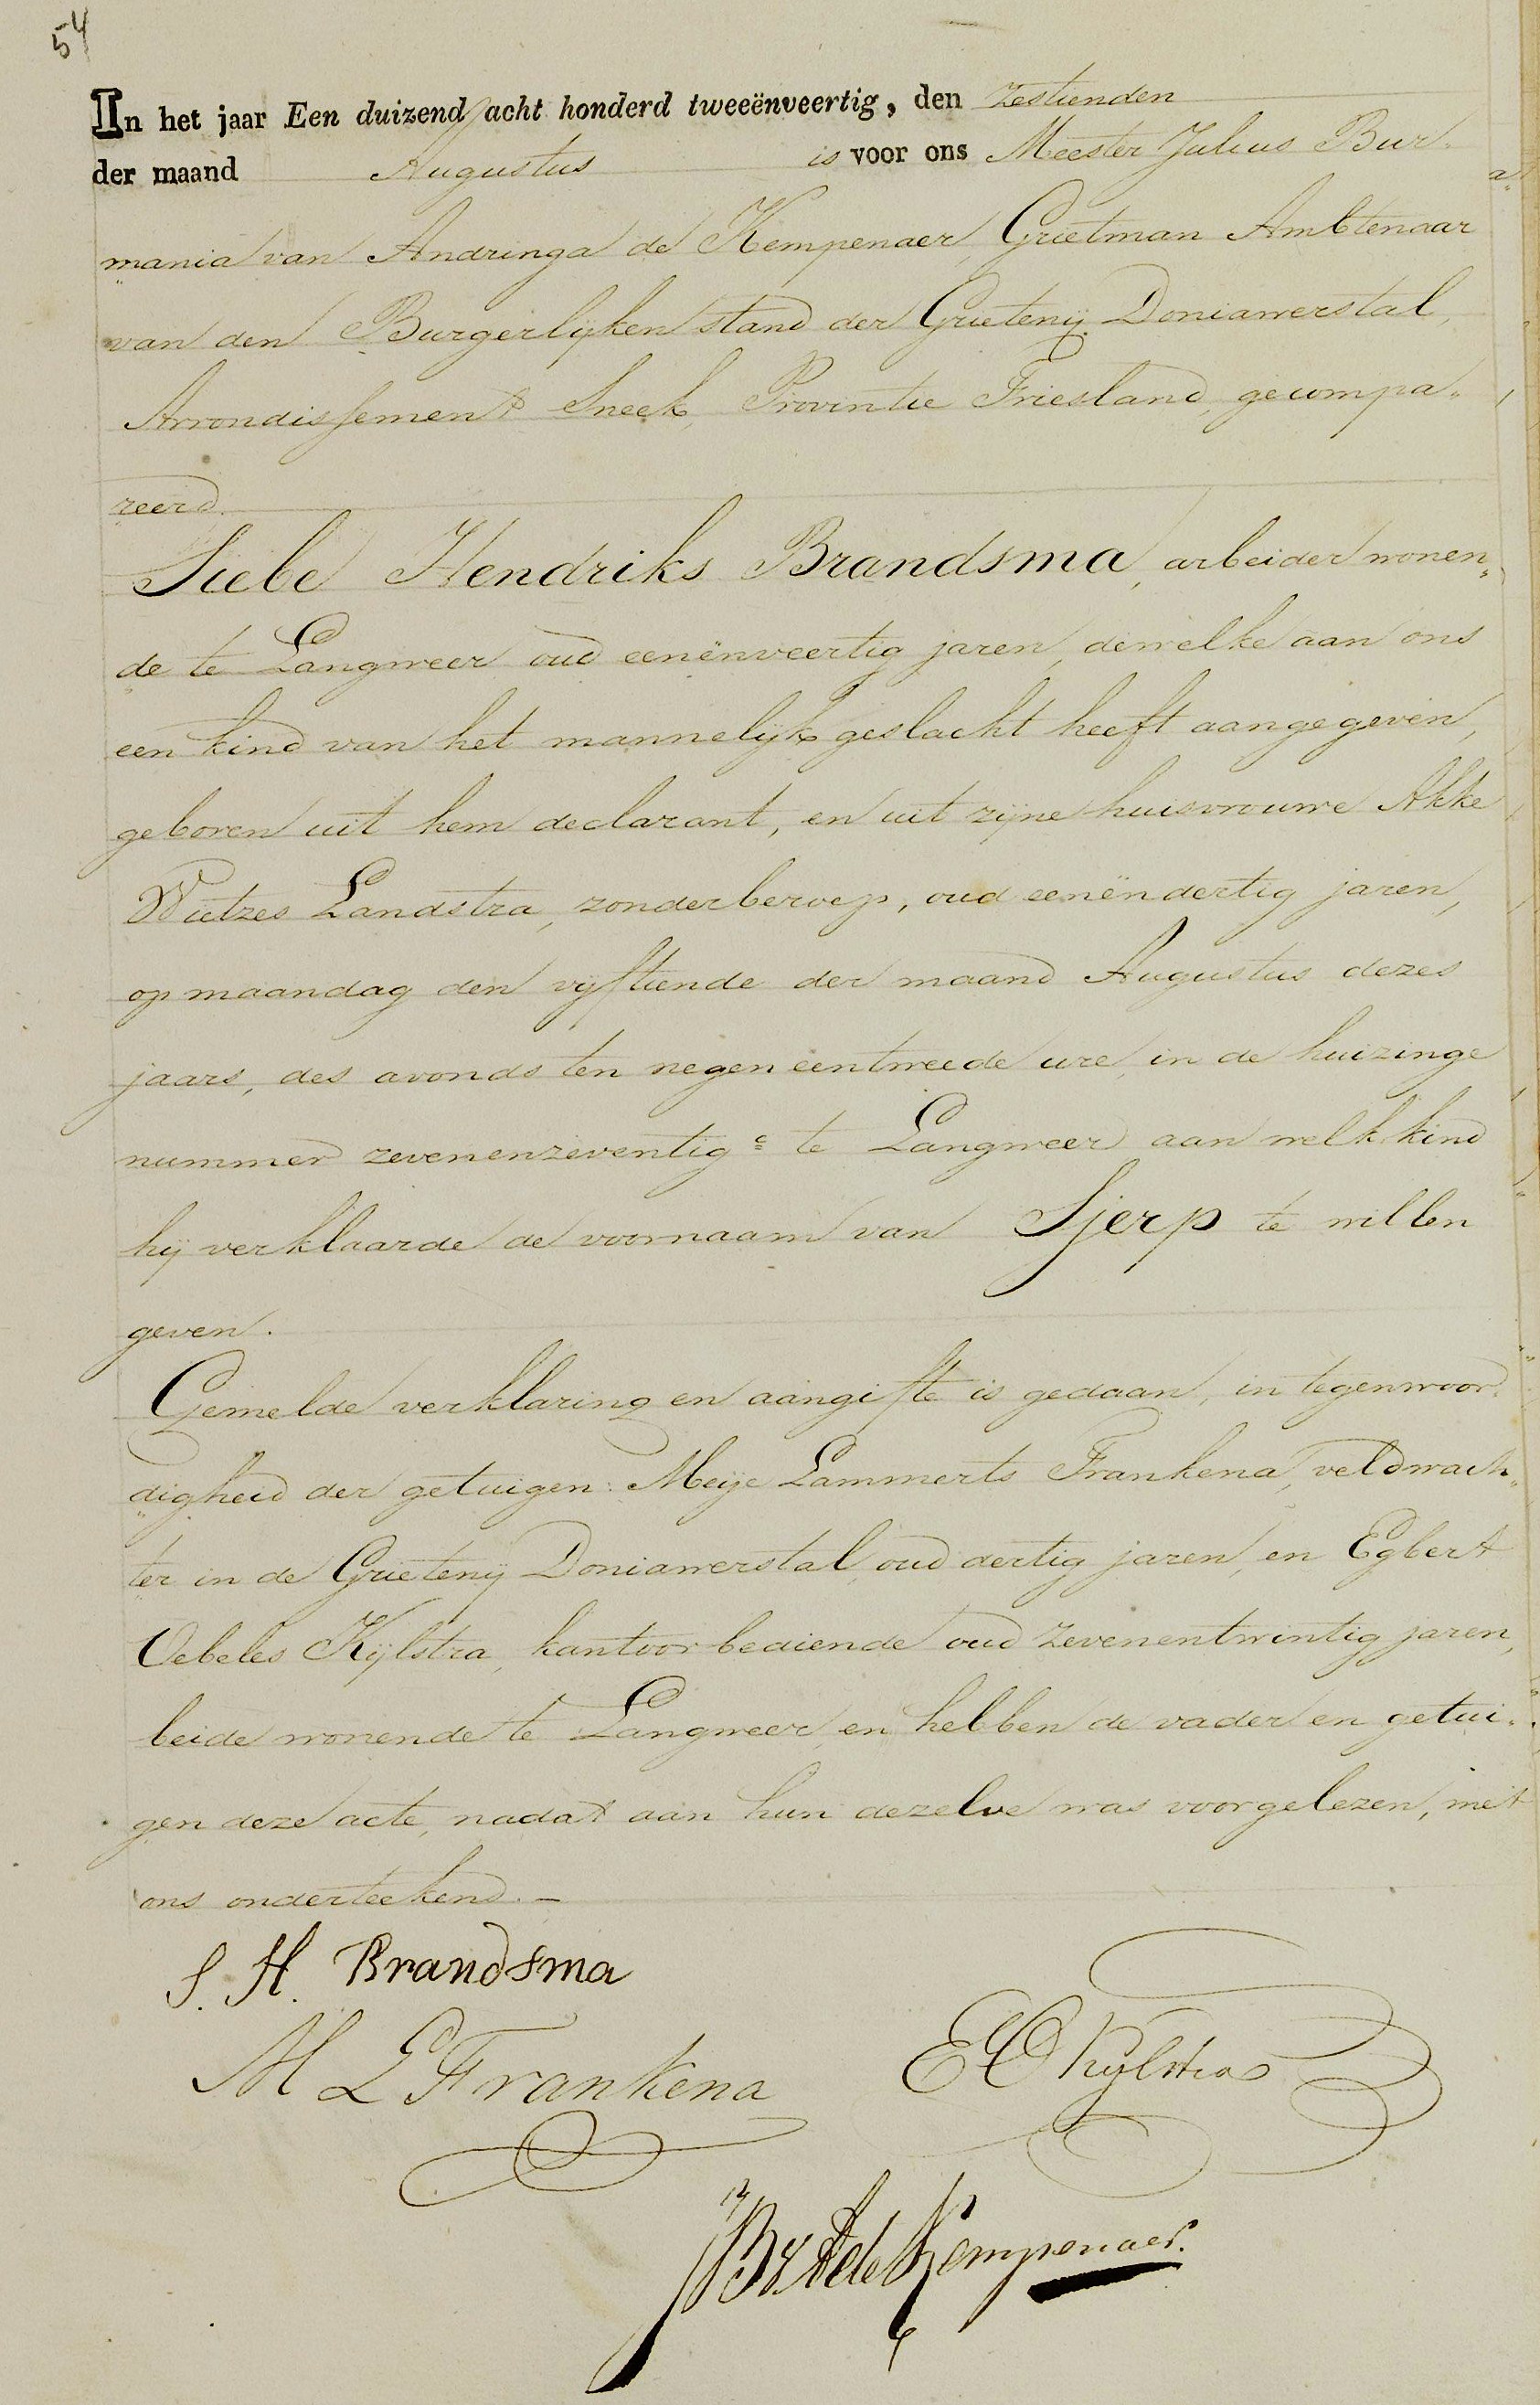 54
In het jaar Een duizend acht honderd tweeënveertig, den zestienden
der maand Augustus is voor ons Meester Julius Bur-
mania van Andringa de Kempenaer, Grietman Ambtenaar
van den Burgerlijken stand der Grietenij Doniawerstal,
Arrondissement Sneek, Provintie Friesland, gecompa-
reerd.
Siebe Hendriks Brandsma, arbeider wonen-
de te Langweer oud eenënveertig jaren, dewelke aan ons
een kind van het mannelijk geslacht heeft aangegeven,
geboren uit hem declarant, en uit zijne huisvrouwe Akke
Wietzes Landstra, zonder beroep, oud eenëndertig jaren,
op maandag den vijftiende der maand Augustus dezes
jaars, des avonds ten negen eentweede ure, in de huizinge
nummer zevenenzeventig c te Langweer aan welk kind
hij verklaarde de voornaam van Sjerp te willen
geven.
Gemelde verklaring en aangifte is gedaan, in tegenwoor-
digheid der getuigen: Meije Lammerts Frankena, veldwach-
ter in de Grietenij Doniawerstal, oud dertig jaren, en Egbert
Oebeles Kijlstra, kantoorbediende oud zevenentwintig jaren,
beide wonende te Langweer, en hebben de vader en getui-
gen deze acte, nadat aan hun dezelve was voorgelezen, met
ons onderteekend. –
S. H. Brandsma
M L Frankena
E O Kijlstra
JBVAdeKempenaer.